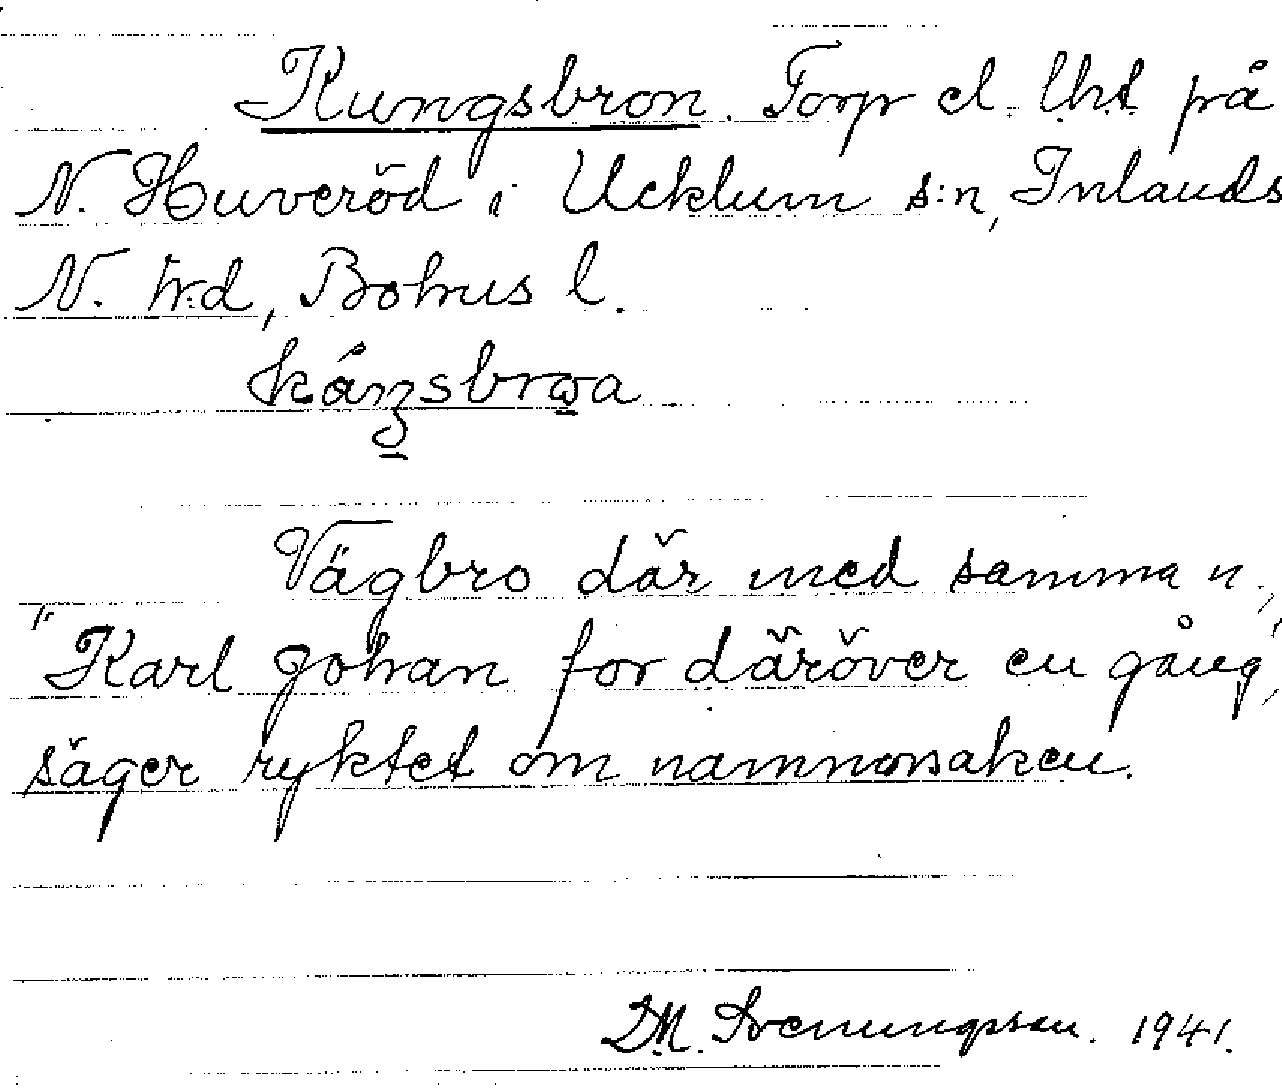 Kungsbron. Torp el. lht på
N. Huveröd i Ucklum s:n, Inlands
N. hrd, Bohus l.
Vägbro där med samma n.,
"Karl Johan for däröver en gång",
säger ryktet om namnorsaken.
D.M. Svenungsson. 1941.